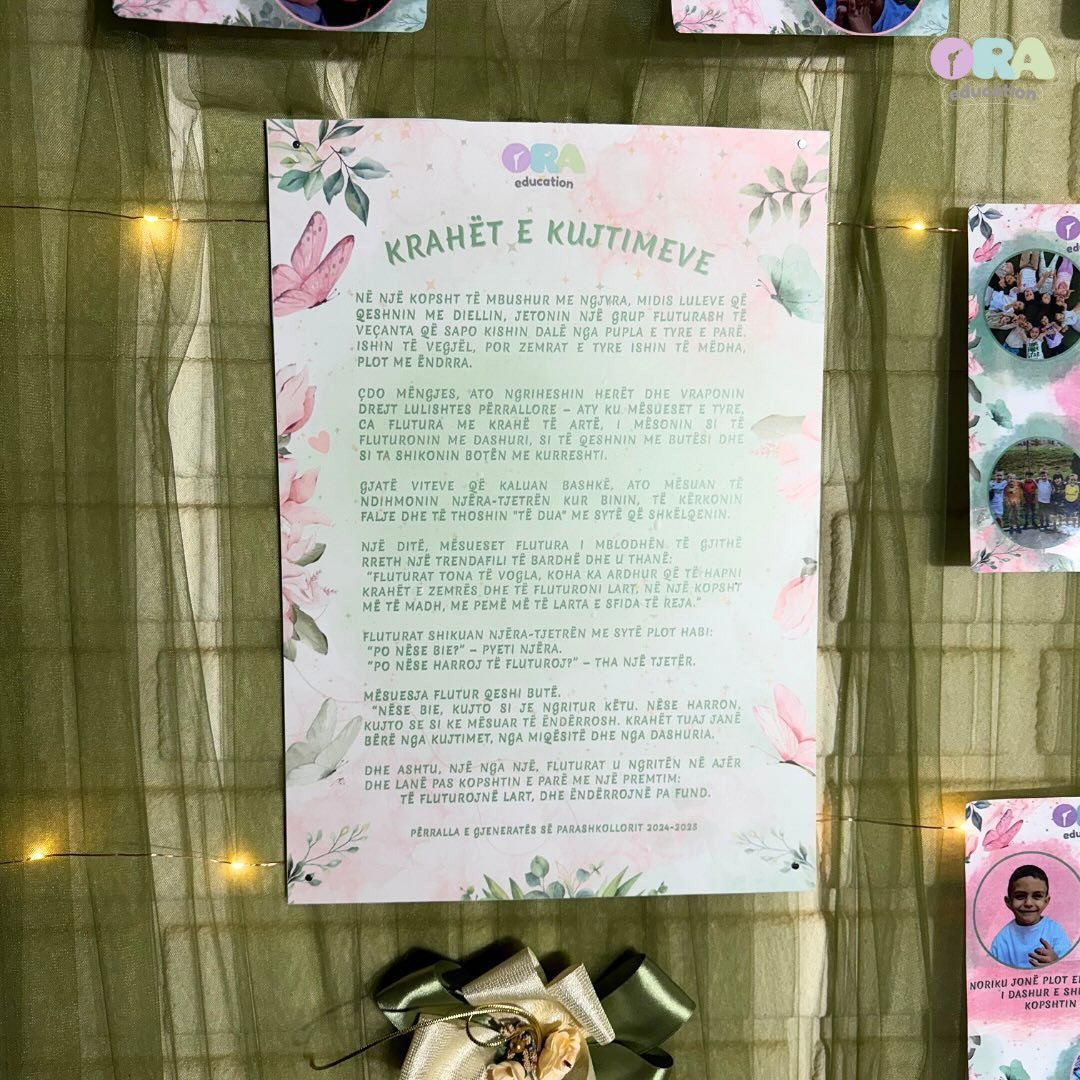 ORA
education
ORA
education
KRAHËT E KUJTIMEVE
NË NJË KOPSHT TË MBUSHUR ME NGJYRA, MIDIS LULEVE QË
QESHNIN ME DIELLIN, JETONIN NJË GRUP FLUTURASH TË
VEÇANTA QË SAPO KISHIN DALË NGA PUPLA E TYRE E PARË.
ISHIN TË VEGJËL, POR ZEMRAT E TYRE ISHIN TË MËDHA,
PLOT ME ËNDRRA.
ÇDO MËNGJES, ATO NGRIHESHIN HERËT DHE VRAPONIN
DREJT LULISHTES PËRRALLORE – ATY KU MËSUESET E TYRE,
CA FLUTURA ME KRAHË TË ARTË, I MËSONIN SI TË
FLUTURONIN ME DASHURI, SI TË QESHNIN ME BUTËSI DHE
SI TA SHIKONIN BOTËN ME KURRESHTI.
GJATË VITEVE QË KALUAN BASHKË, ATO MËSUAN TË
NDIHMONIN NJËRA-TJETRËN KUR BININ, TË KËRKONIN
FALJE DHE TË THOSHIN "TË DUA" ME SYTË QË SHKËLQENIN.
NJË DITË, MËSUESET FLUTURA I MBLODHËN TË GJITHË
RRETH NJË TRENDAFILI TË BARDHË DHE U THANË:
"FLUTURAT TONA TË VOGLA, KOHA KA ARDHUR QË TË HAPNI
KRAHËT E ZEMRËS DHE TË FLUTURONI LART, NË NJË KOPSHT
MË TË MADH, ME PEMË MË TË LARTA E SFIDA TË REJA."
FLUTURAT SHIKUAN NJËRA-TJETRËN ME SYTË PLOT HABI:
"PO NËSE BIE?" – PYETI NJËRA.
"PO NËSE HARROJ TË FLUTUROJ?" – THA NJË TJETËR.
MËSUESJA FLUTUR QESHI BUTË.
"NËSE BIE, KUJTO SI JE NGRITUR KËTU. NËSE HARRON,
KUJTO SE SI KE MËSUAR TË ËNDËRROSH. KRAHËT TUAJ JANË
BËRË NGA KUJTIMET, NGA MIQËSITË DHE NGA DASHURIA.
DHE ASHTU, NJË NGA NJË, FLUTURAT U NGRITËN NË AJËR
DHE LANË PAS KOPSHTIN E PARË ME NJË PREMTIM:
TË FLUTUROJNË LART, DHE ËNDËRROJNË PA FUND.
PËRRALLA E GJENERATËS SË PARASHKOLLORIT 2024-2025
NORIKU JONË PLOT
I DASHUR E
KOPSHTIN